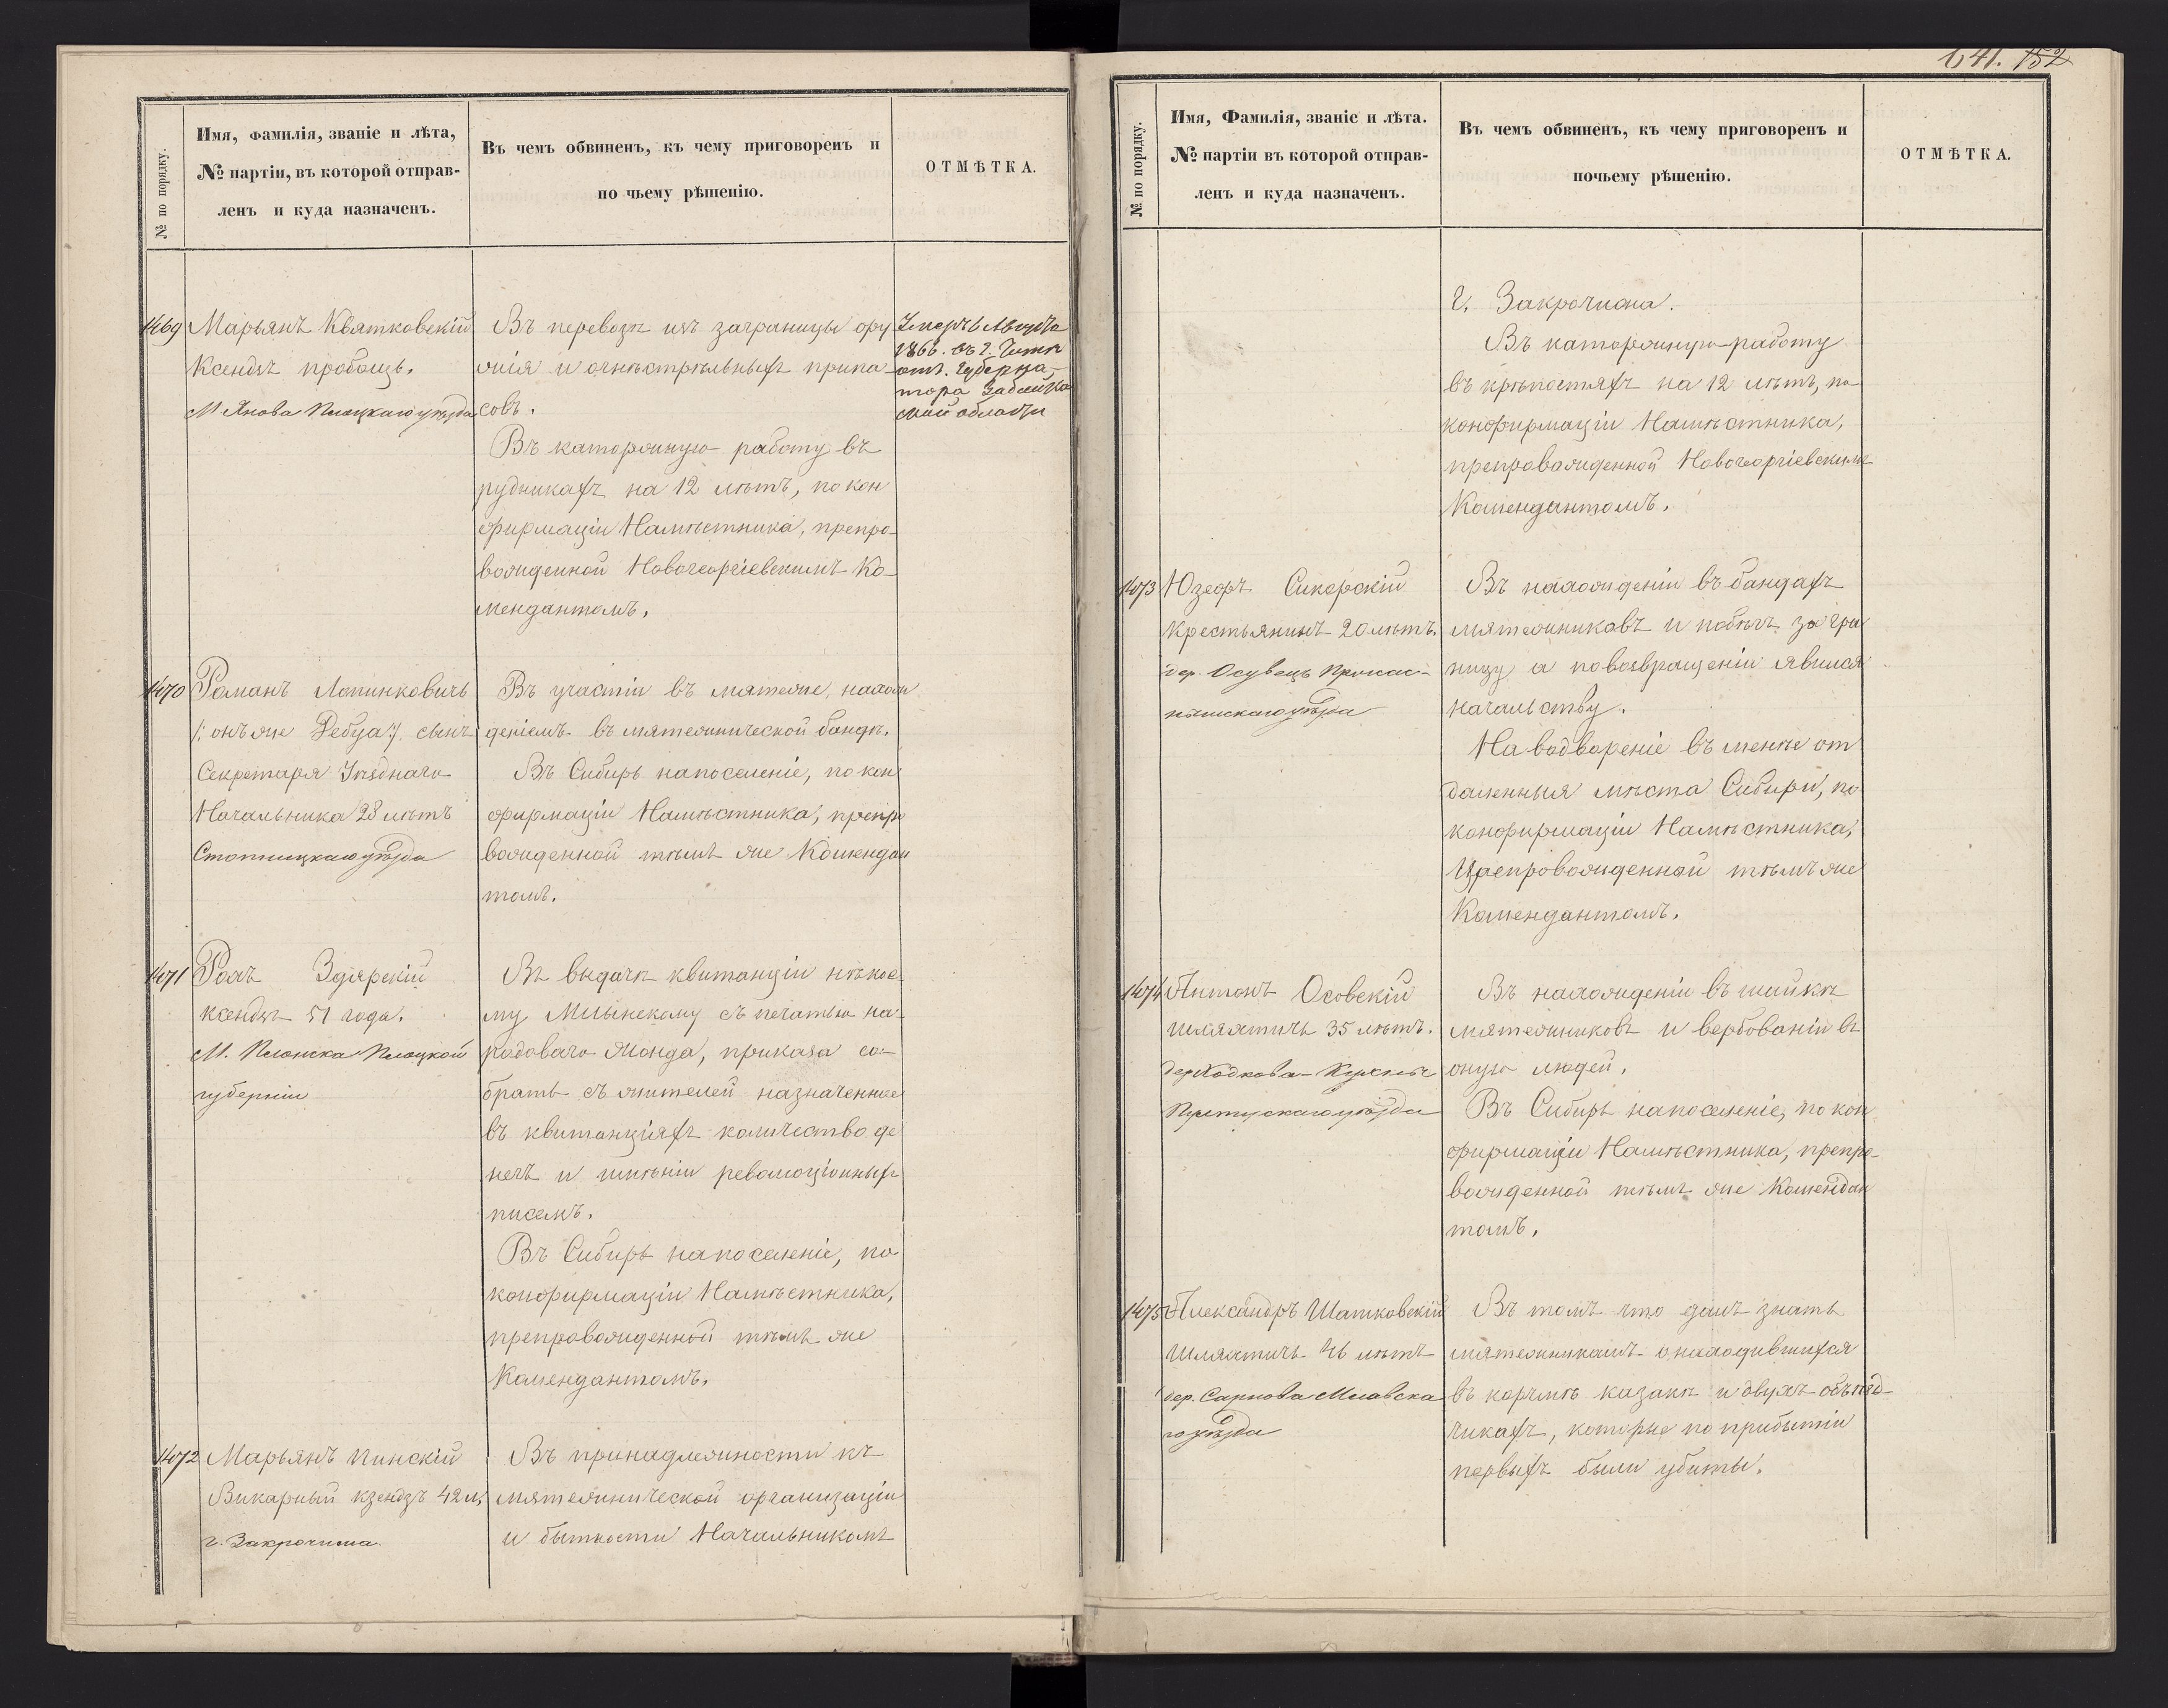 141. 152
№ по порядку.
Имя, фамилія, званіе и лѣта,
№ партіи, въ которой отправ-
ленъ и куда назначенъ.
Въ чемъ обвиненъ, къ чему приговоренъ и
по чьему рѣшенію.
ОТМѢТКА.
1469
Марьянъ Квятковскій
Ксендзъ пробощъ.
М. Янова Плоцкаго уѣзда
Въ перевозѣ изъ заграницы ору
жія и огнестрѣльныхъ припа
совъ.
Въ каторжную работу въ
рудникахъ на 12 лѣтъ, по кон
фирмаціи Намѣстника, препро-
вожденной Новогеоргіевскимъ Ко-
мендантомъ.
Умеръ 6 Августа
1866. въ г. Читѣ
отъ. Губерна-
тора Забайка
ской области
1470
Романъ Лопинковичъ
/: онъ же Дебуа :/ сынъ
Секретаря Уѣзднаго
Начальника 28 лѣтъ
Стопницкаго уѣзда
Въ участіи въ мятежѣ, нахож
деніемъ въ мятежнической бандѣ.
Въ Сибирь на поселеніе, по кон
фирмаціи Намѣстника, препро
вожденной тѣмъ же Комендан
томъ.
1471
Рохъ Здярскій
ксендзъ 51 года.
М. Плонска Плоцкой
губерніи
Въ выдачѣ квитанціи нѣкое
му Млынскому съ печатью на-
родоваго Жонда, приказа со-
брать съ жителей назначенное
въ квитанціяхъ количество де
негъ и имѣніи революціонныхъ
писемъ.
Въ Сибирь на поселеніе, по
конфирмаціи Намѣстника,
препровожденной тѣмъ же
Комендантомъ.
1472
Марьянъ Пинскій
Викарный кзендзъ 42 л.
г. Закрочима.
Въ принадлежности къ
мятежнической организаціи
и бытности Начальникомъ
№ по порядку.
Имя, Фамилія, званіе и лѣта.
№ партіи въ которой отправ-
ленъ и куда назначенъ.
Въ чемъ обвиненъ, къ чему приговоренъ и
почьему рѣшенію.
ОТМѢТКА.
г. Закрочима.
Въ каторжную работу
въ крѣпостяхъ на 12 лѣтъ, по
конфирмаціи Намѣстника,
препровожденной Новогеоргіевскимъ
Комендантомъ.
1473
Юзефъ Сикорскій
Крестьянинъ 20 лѣтъ.
дер. Осувецъ Праснс-
нышскаго уѣзда
Въ нахожденіи въ бандахъ
мятежниковъ и побѣгѣ за гра
ницу а по возвращеніи явился
начальству.
На водвореніе въ менѣе от
даленныя мѣста Сибири, по
конфирмаціи Намѣстника,
препровожденной тѣмъ же
Комендантомъ.
1474
Антонъ Осовскій
шляхтичъ 35 лѣтъ.
дер. Ходкова-
Пултускаго уѣзда
Въ нахожденіи въ шайкѣ
мятежниковъ и вербованіи въ
оную людей.
Въ Сибирь на поселеніе, по кон
фирмаціи Намѣстника, препро-
вожденной тѣмъ же Комендан
томъ.
1475
Александръ Шатковскій
Шляхтичъ 46 лѣтъ
дер. Сарнова Млавска
го уѣзда
Въ томъ что далъ знать
мятежникамъ о находившихся
въ корчмѣ казакѣ и двухъ объѣзд-
чикахъ, которые по прибытіи
первыхъ были убиты.